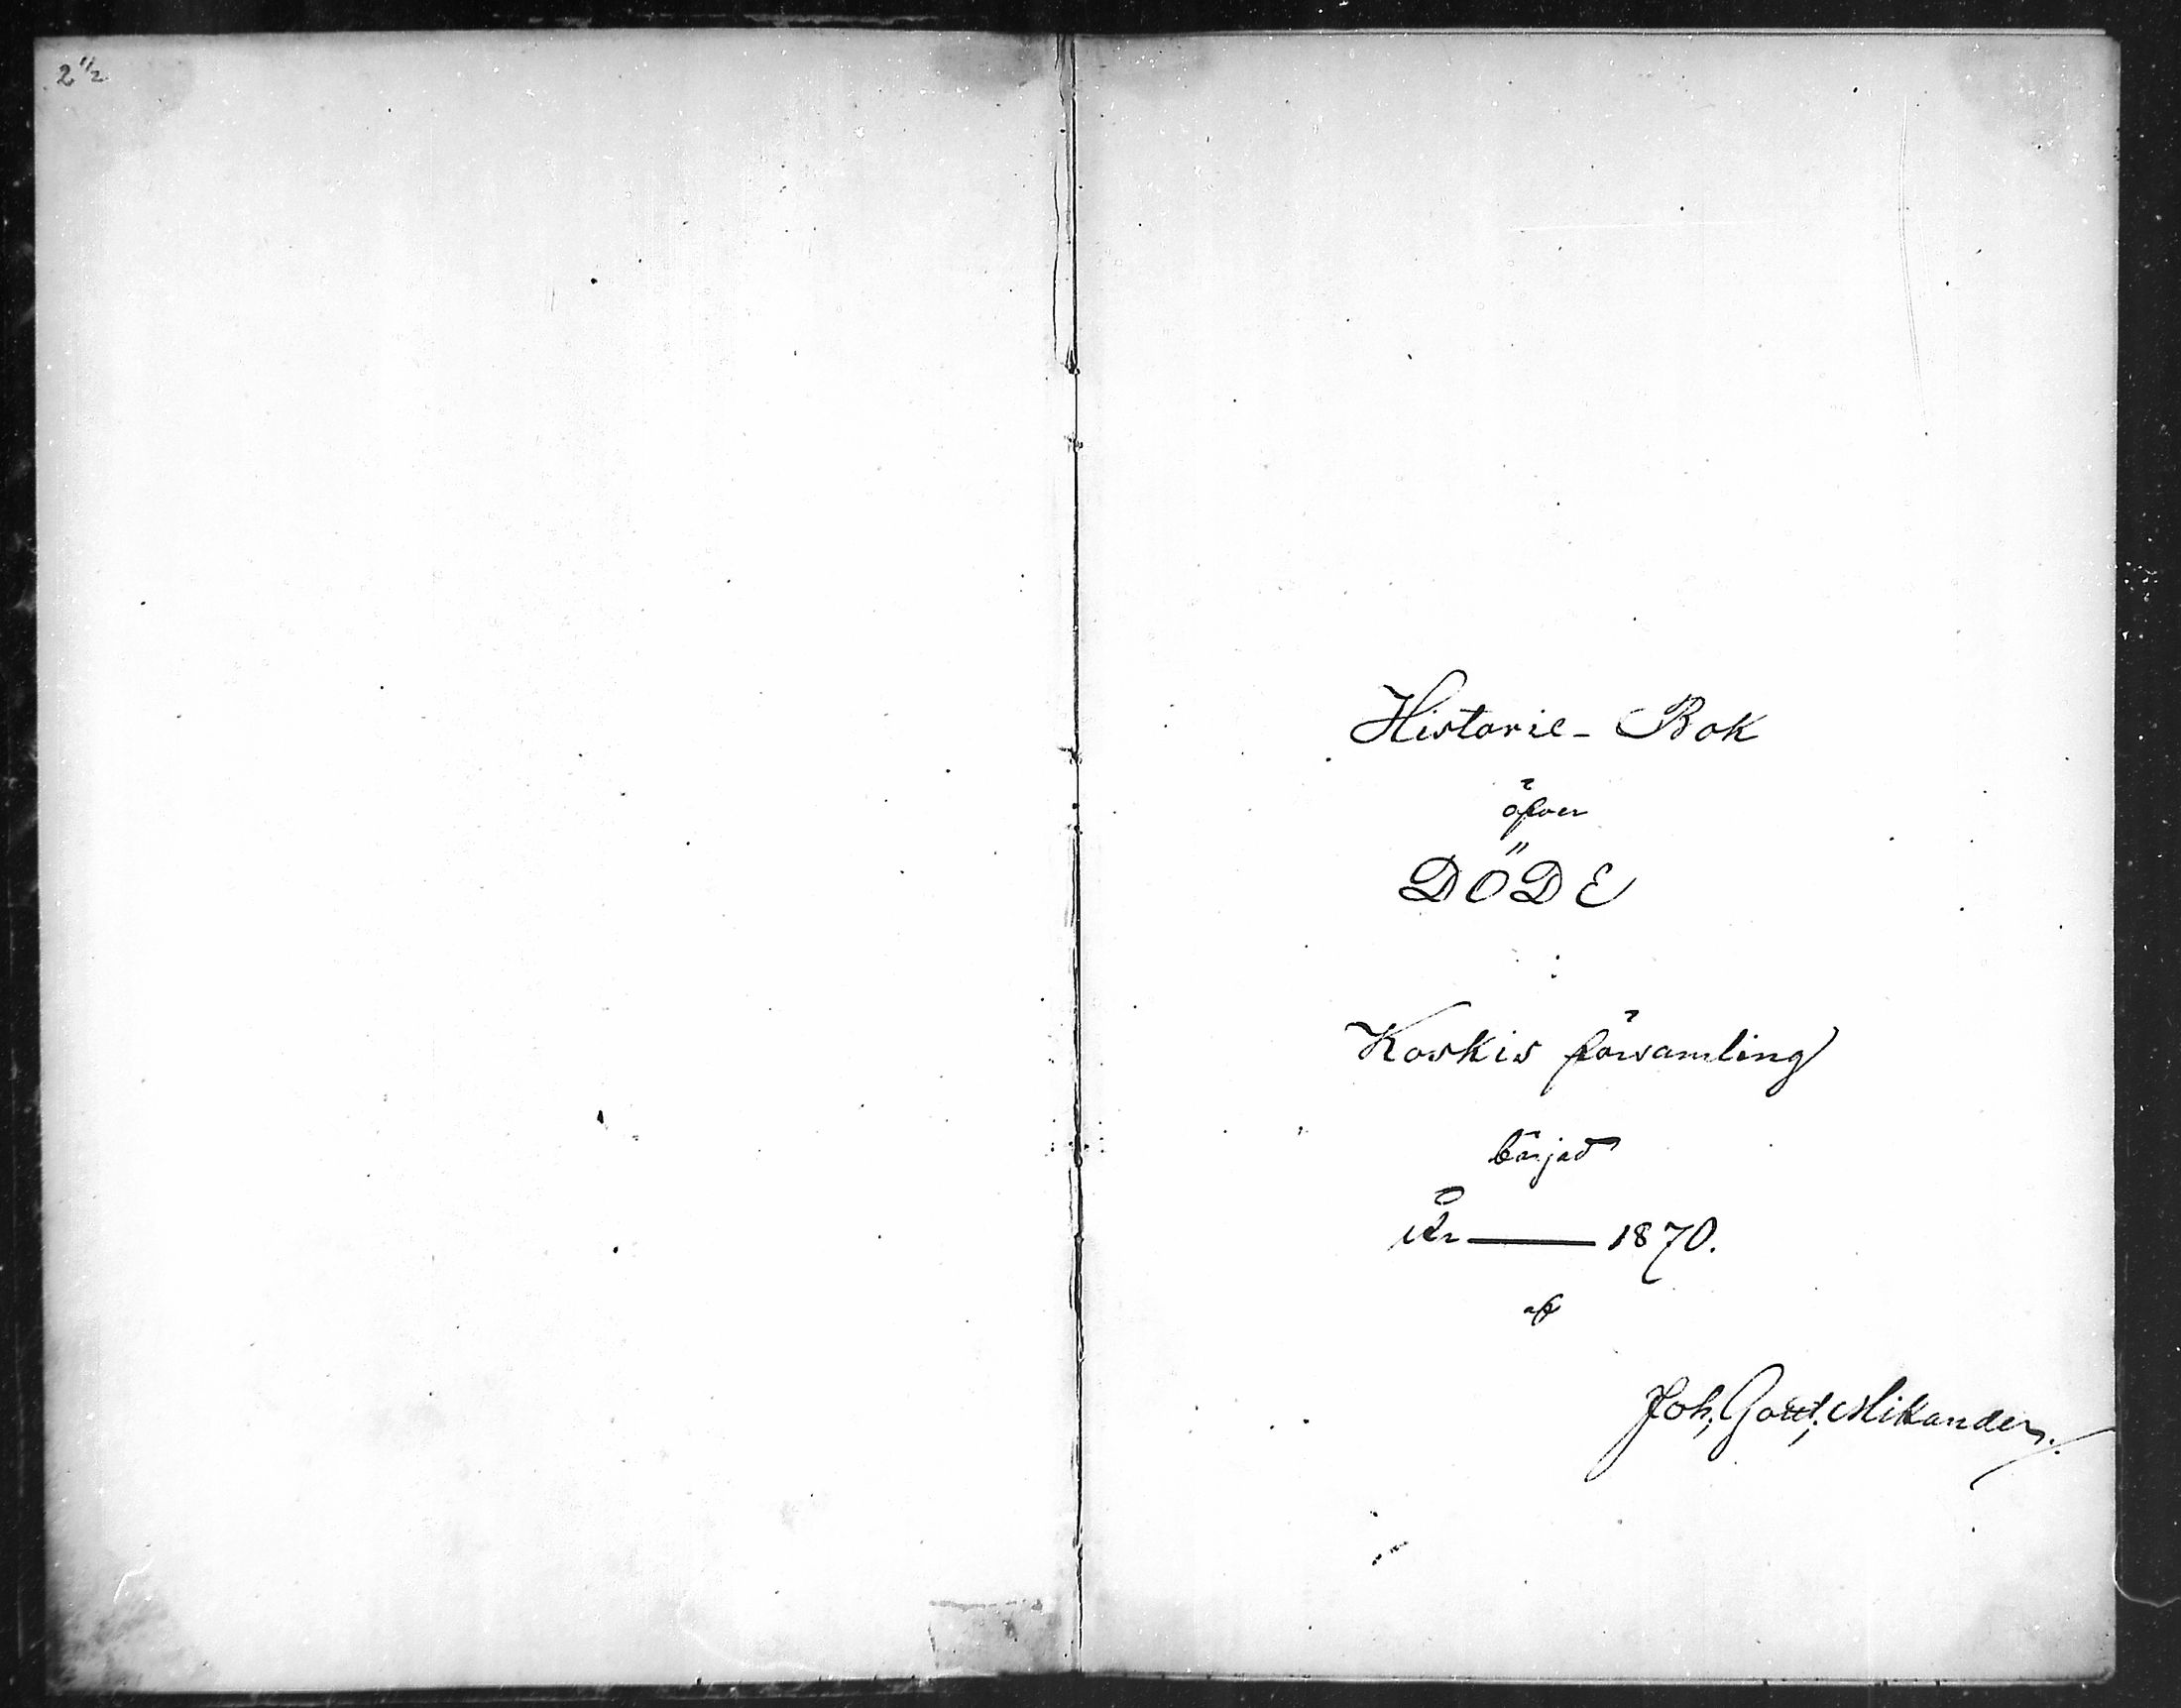 2 1/2
Historie-Bok
öfver
DÖDE
Koskis församling
börjad
År — 1870.
af
Joh, Gott, Mikander.